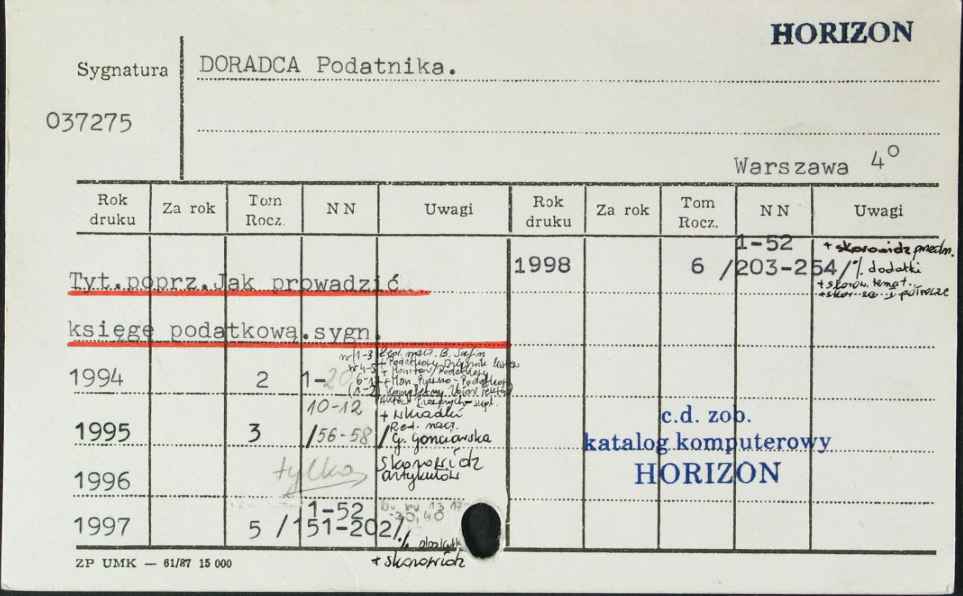 HORIZON
Sygnatura
DORADCA Podatnika.
037275
Warszawa 4°
Rok druku Za rok Tom Rocz. NN Uwagi Rok druku Za rok Tom Rocz. NN Uwagi
1-52 + skorowidz przedm.
Tyt.poprz.Jak prowadzić 1998 6 /203-254/ dodatki
+ skorow. temat.
księgę podatkową.sygn.
nr 1-3
1994 2 1-20
10-12 + wkładki
1995 3 /56-58/ Red. nacz.
G. Gonciarska
c.d. zob.
katalog komputerowy
HORIZON
1996 tylko skorowidz
artykułów
1-52
1997 5 /151-202/
+ skorowidz
ZP UMK — 61/87 15 000